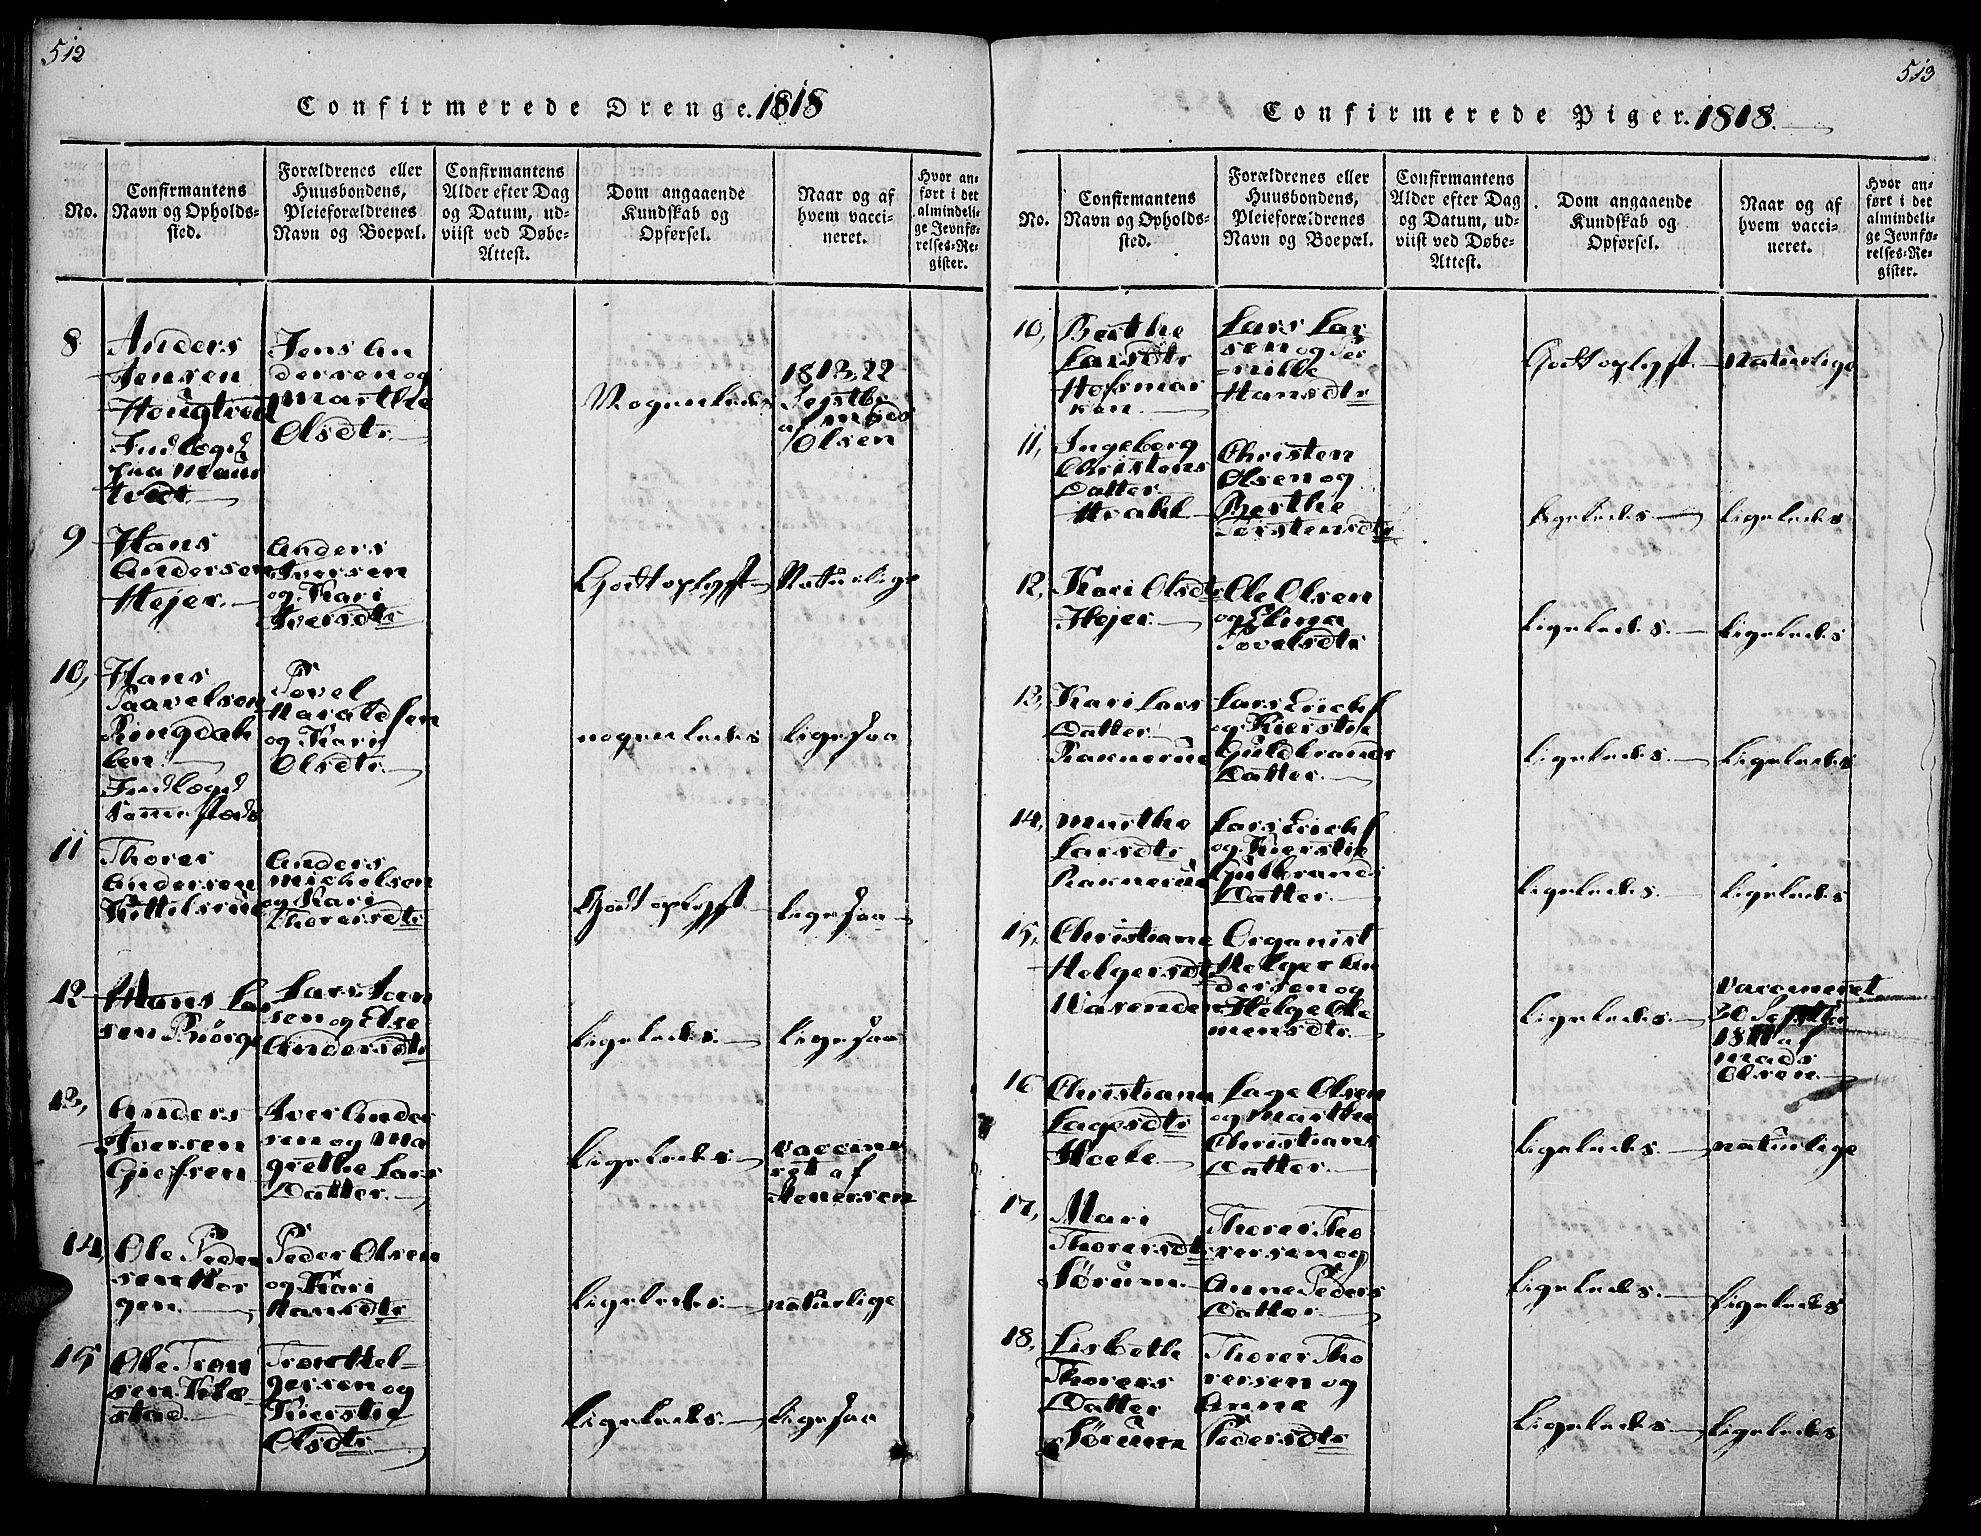 512
Confirmerede Drenge. 1818
No.
Confirmantens
Navn og Opholds-
sted.
Forældrenes eller
Huusbondens,
Pleieforældrenes
Navn og Boepæl.
Confirmantens
Alder efter Dag
og Datum, ud-
viist ved Døbe-
Attest.
Dom angaaende
Kundskab og
Opførsel.
Naar og af
hvem vacci-
neret.
Hvor an-
ført i det
almindeli-
ge Jevnfø-
relses-Re-
gister.
8
Anders
Jensen
Indlægd
paa
Jens An
dersen og
Marthe
Olsdtr
Nogenledes
1813, 22
af Mads
Olsen
9
Hans
Andersen
Hejer.
Anders
Iversen
og Kari
Iversdtr
Godt oplyst
Naturlige
10,
Hans
Paavelsen
Ringdah
len.
Indlægd
Povel
Haraldsen
og Kari
Olsdtr.
nogenledes
ligesaa
11
Thorer
Andersen
Kittelsrud
Anders
Michelsen
og Kari
Thorersdtr
Godt oplyst
ligesaa
12
Hans Lar
sen Børge
Lars
sen og Else
Andersdtr
Ligeledes.
ligesaa
13,
Anders
Iversen
Iver Ander
sen og Ma
grethe Lars
Datter.
Ligeledes.
vaccine
ret af
Stenersen
14,
Ole Peder
sen Hor
gen.
Peder Olsen
og Kari
Hansdtr
Ligeledes.
naturlige
15
Ole Tron
sen
stad.
Tron Hel-
gersen og
Kierstie
Olsdtr
Ligeledes.
ligesaa
513
Confirmerede Piger. 1818.
No.
Confirmantens
Navn og Opholds-
sted.
Forældrenes eller
Huusbondens,
Pleieforældrenes
Navn og Boepæl.
Confirmantens
Alder efter Dag
og Datum, ud-
viist ved Døbe-
Attest.
Dom angaaende
Kundskab og
Opførsel.
Naar og af
hvem vacci-
neret.
Hvor an-
ført i det
almindeli-
ge Jevnfø-
relses-Re-
gister.
10,
Berthe
Larsdtr
Hofsmar
ken
Lars Lar
sen og Per
nille
Hansdtr
Godt oplyst
Naturlige
11,
Ingeberg
Christens
Datter
Christen
Olsen og
Berthe
Torstensdtr
Ligeledes.
Ligeledes
12,
Kari Olsdtr
Hejer.
Ole Olsen
og Elina
Povelsdtr
Ligeledes.
Ligeledes
13,
Kari Lars
Datter
Raknerud
Lars Erichs
og Kierstie
Guldbrands
Datter.
Ligeledes.
Ligeledes
14,
Marthe
Larsdtr
Raknerud
Lars Erichs
og Kierstie
Gulbrands
Datter.
Ligeledes.
Ligeledes
15,
Christiane
Helgersdtr
Organist
Helger An
dersen og
Helge Cle
mensdtr
Ligeledes.
Vaccineret
30 Septbr
af
Mads
Olsen.
16
Christiana
Lagesdtr
Lage Olsen
og Marthe
Christians
Datter.
Ligeledes.
naturlige
17,
Mari
Thorersdtr
Sørum
Thorer Tho
rersen og
Anne Peders
Datter
Ligeledes.
Ligeledes
18,
Lisbethe
Thorers
Datter
Sørum
Thorer Tho
rersen og
Anne
Pedersdtr
Ligeledes.
Ligeledes